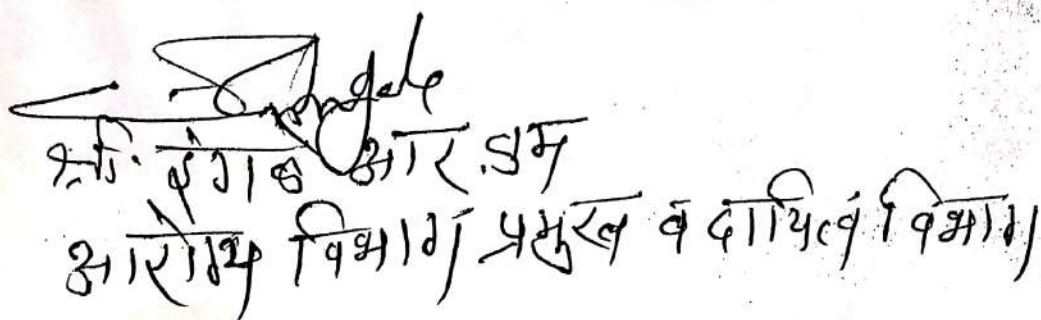 श्री. इंगळे आर.एम
आरोग्य विभाग प्रमुख व दायित्व विभाग